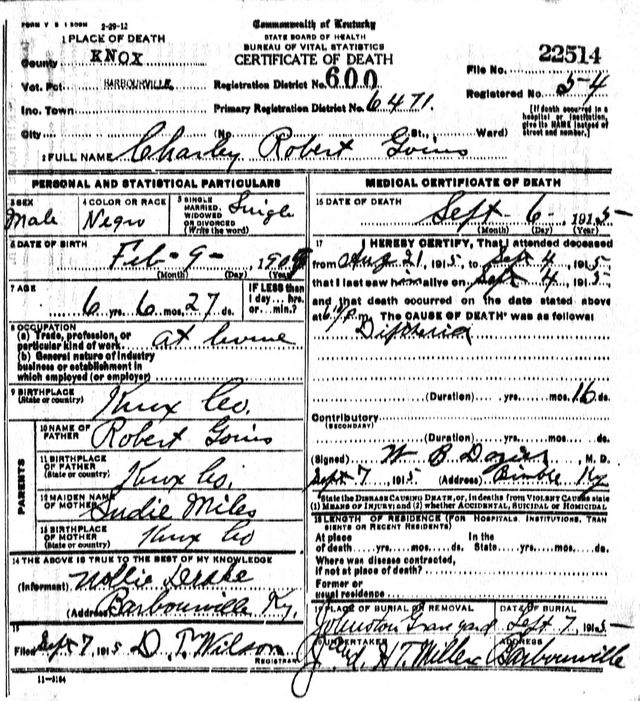 FORM V S 1 500M 2-29-12
Commonwealth of Kentucky
STATE BOARD OF HEALTH
BUREAU OF VITAL STATISTICS
CERTIFICATE OF DEATH
1 PLACE OF DEATH
County KNOX
Vot. Pct BARBOURVILLE
Inc. Town
City (No St., Ward)
Registration District No. 600
Primary Registration District No. 6471.
File No. 22514
Registered No. 54
[If death occurred in a
hospital or institution,
give its NAME instead of
street and number.]
2 FULL NAME Charley Robert Goins
PERSONAL AND STATISTICAL PARTICULARS
3 SEX Male
4 COLOR OR RACE Negro
5 SINGLE
MARRIED,
WIDOWED
OR DIVORCED
(Write the word) Single
6 DATE OF BIRTH
Feb - 9 - 1909
(Month) (Day) (Year)
7 AGE
6 yrs. 6 mos. 27 ds.
IF LESS than
1 day... hrs.
or min.?
8 OCCUPATION
(a) Trade, profession, or
particular kind of work at home
(b) General nature of industry
business or establishment in
which employed (or employer)
9 BIRTHPLACE
(State or country) Knox Co.
PARENTS
10 NAME OF
FATHER Robert Goins
11 BIRTHPLACE
OF FATHER
(State or country) Knox Co.
12 MAIDEN NAME
OF MOTHER Sudie Miles
13 BIRTHPLACE
OF MOTHER
(State or country) Knox Co
14 THE ABOVE IS TRUE TO THE BEST OF MY KNOWLEDGE
(Informant)
(Address) Barbourville Ky.
15
Filed Sept 7, 1915 D. T. Wilson
REGISTRAR
11-3184
MEDICAL CERTIFICATE OF DEATH
16 DATE OF DEATH
Sept - 6, 1915
(Month) (Day) (Year)
17 I HEREBY CERTIFY, That I attended deceased
from Aug 21, 1915, to Sept 4, 1915
that I last saw him alive on Sept 4, 1915
and that death occurred on the date stated above
at m. The CAUSE OF DEATH* was as follows:
Diptheria
(Duration) yrs. mos. 16 ds.
Contributory
(SECONDARY)
(Duration) yrs. mos. ds.
(Signed) W B M. D.
Sept 7, 1915 (Address) Ky
*State the DISEASE CAUSING DEATH, or, in deaths from VIOLENT CAUSES state
(1) MEANS OF INJURY; and (2) whether ACCIDENTAL, SUICIDAL or HOMICIDAL
18 LENGTH OF RESIDENCE (FOR HOSPITALS, INSTITUTIONS, TRANSIENTS OR RECENT RESIDENTS)
At place In the
of death yrs. mos. ds. State yrs. mos. ds.
Where was disease contracted,
if not at place of death?
Former or
usual residence
19 PLACE OF BURIAL OR REMOVAL DATE OF BURIAL
Johnston Graveyard Sept 7, 1915
20 UNDERTAKER ADDRESS
Barbourville